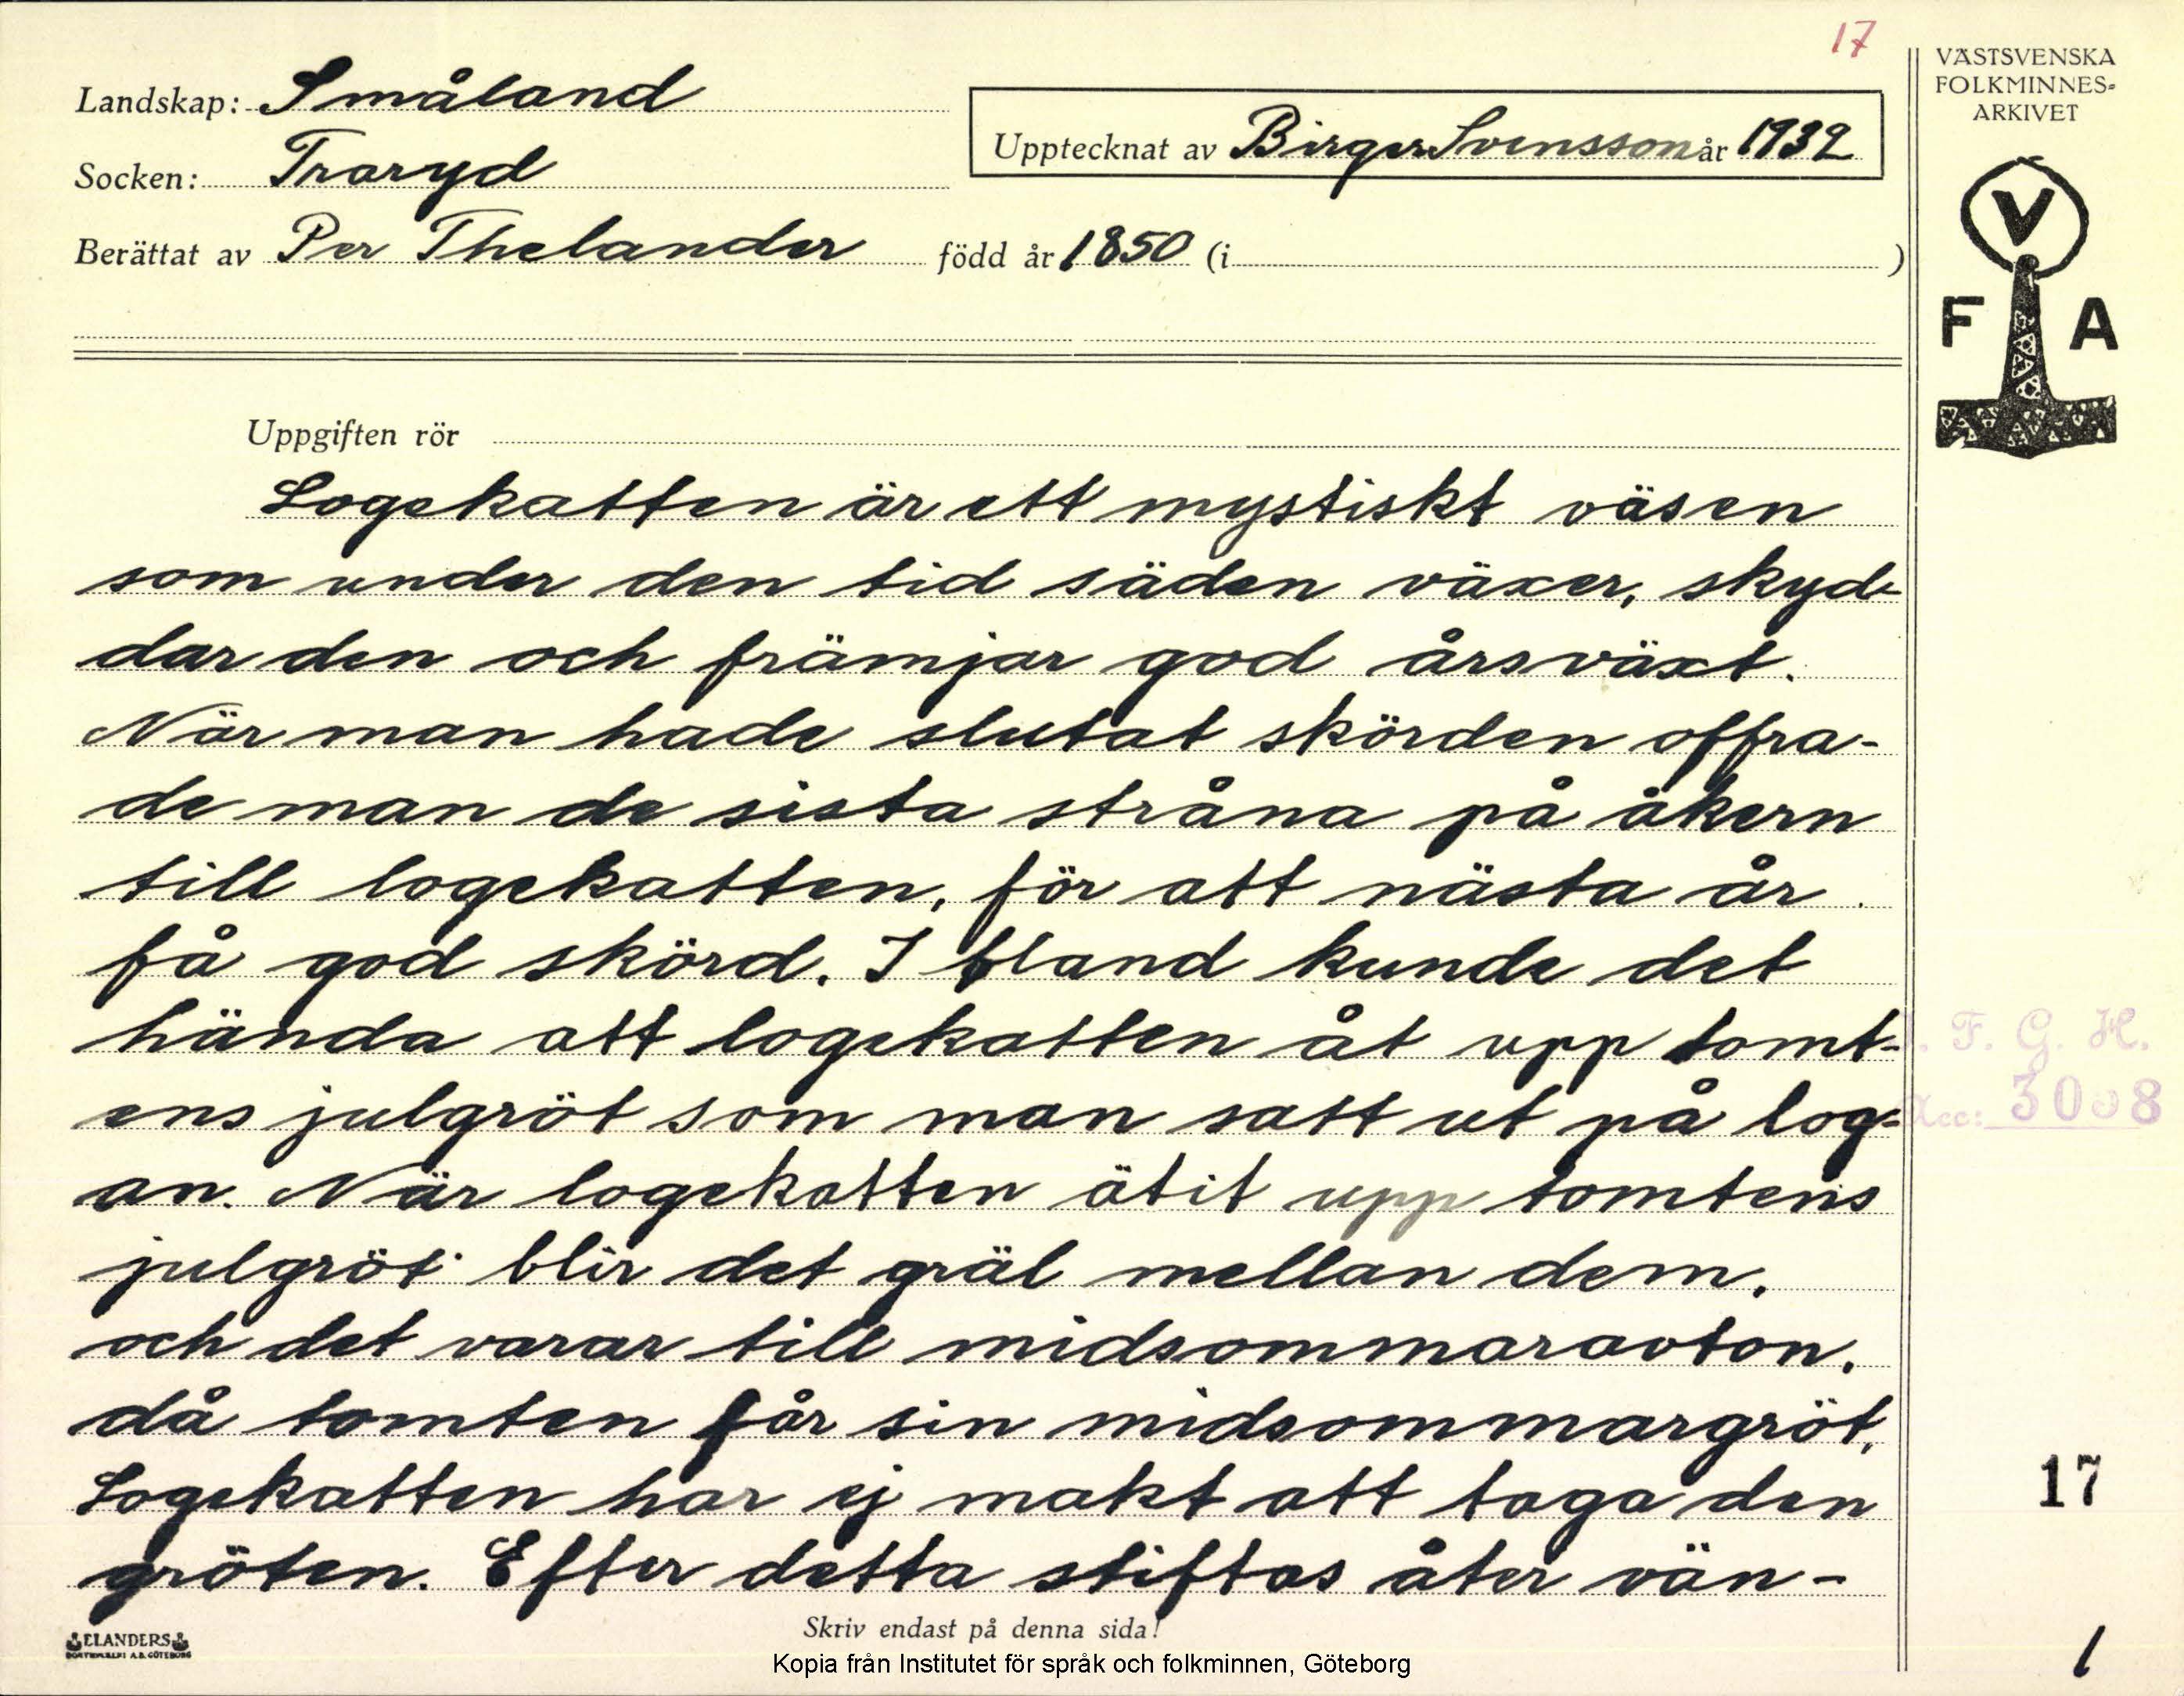 17
VÄSTSVENSKA
FOLKMINNES-
ARKIVET
Landskap: Småland
Upptecknat av Birger Svensson år 1932
Socken: Traryd
Berättat av Per Thelander född år 1850 (i )
V
F A
Uppgiften rör
Logekatten är ett mystiskt väsen
som under den tid säden växer, skyd-
dar den och främjar god årsväxt.
När man hade slutat skörden offra-
de man de sista stråna på åkern
till logekatten, för att nästa år
få god skörd. I bland kunde det
hända att logekatten åt upp tomt-
ens julgröt som man satt ut på log-
an. När logekatten ätit upp tomtens
julgröt blir det gräl mellan dem,
och det varar till midsommaravton,
då tomten får sin midsommargröt,
Logekatten har ej makt att taga den
gröten. Efter detta stiftas åter vän-
F. G. H.
Acc: 3008
17
1
Skriv endast på denna sida!
ELANDERS
BOKTRYCKERI A.B. GÖTEBORG
Kopia från Institutet för språk och folkminnen, Göteborg